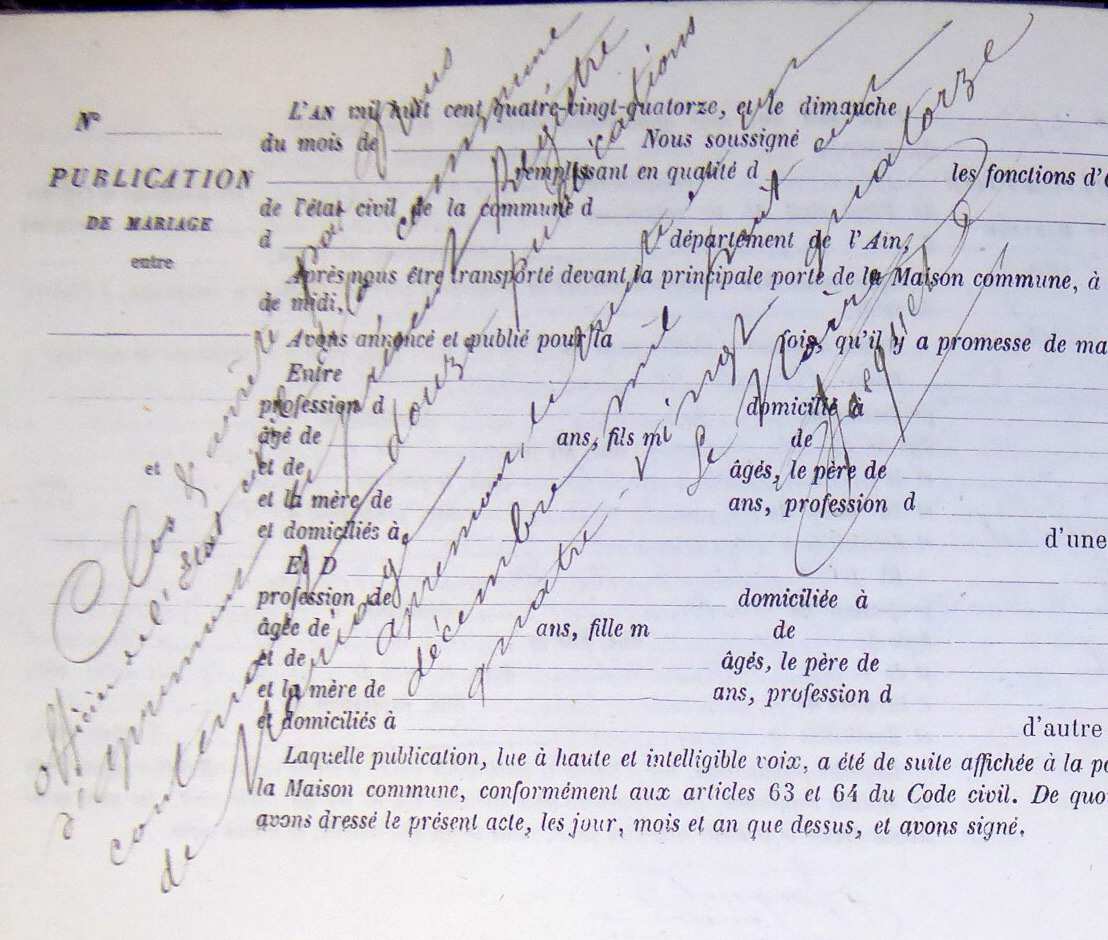 N°
PUBLICATION
DE MARIAGE
entre
et
L'AN mil huit cent quatre-vingt-quatorze, et le dimanche
du mois de Nous soussigné
remplissant en qualité d les fonctions d'
de l'état civil de la commune d
d département de l'Ain,
Après nous être transporté devant la principale porte de la Maison commune, à
de midi,
Avons annoncé et publié pour la fois, qu'il y a promesse de ma
Entre
profession d domicilié à
âgé de ans, fils m de
et de âgés, le père de
et la mère de ans, profession d
et domiciliés à d'une
Et D
profession de domiciliée à
âgée de ans, fille m de
et de âgés, le père de
et la mère de ans, profession d
et domiciliés à d'autre
Laquelle publication, lue à haute et intelligible voix, a été de suite affichée à la po
la Maison commune, conformément aux articles 63 et 64 du Code civil. De quo
avons dressé le présent acte, les jour, mois et an que dessus, et avons signé.
Clos & arrêté par nous
officier de l'Etat civil de la commune
d'apremont le présent Registre
contenant douze publications
de Mariage
apremont, le trente et un
décembre mil huit cent
quatre-vingt quatorze
Le Maire